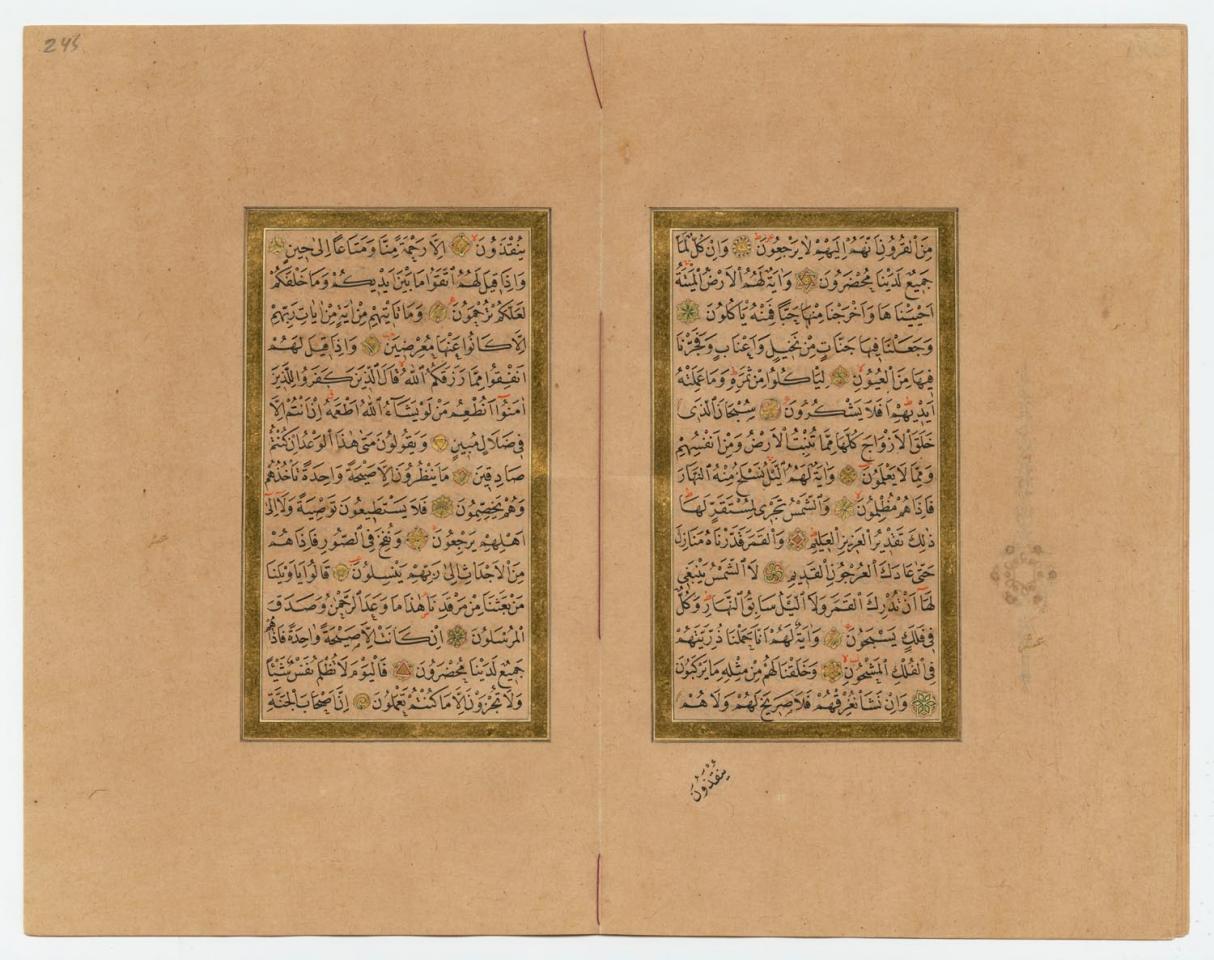 مِنَ الْقُرُونِ اَنَّهُمْ اِلَيْهِمْ لَا يَرْجِعُونَ وَاِنْ كُلٌّ لَمَّا
جَمِيعٌ لَدَيْنَا مُحْضَرُونَ وَاٰيَةٌ لَهُمُ الْاَرْضُ الْمَيْتَةُ
اَحْيَيْنَاهَا وَاَخْرَجْنَا مِنْهَا حَبًّا فَمِنْهُ يَاْكُلُونَ
وَجَعَلْنَا فِيهَا جَنَّاتٍ مِنْ نَخِيلٍ وَاَعْنَابٍ وَفَجَّرْنَا
فِيهَا مِنَ الْعُيُونِ لِيَاْكُلُوا مِنْ ثَمَرِهِ وَمَا عَمِلَتْهُ
اَيْدِيهِمْ اَفَلَا يَشْكُرُونَ سُبْحَانَ الَّذِى
خَلَقَ الْاَزْوَاجَ كُلَّهَا مِمَّا تُنْبِتُ الْاَرْضُ وَمِنْ اَنْفُسِهِمْ
وَمِمَّا لَا يَعْلَمُونَ وَاٰيَةٌ لَهُمُ الَّيْلُ نَسْلَخُ مِنْهُ النَّهَارَ
فَاِذَا هُمْ مُظْلِمُونَ وَالشَّمْسُ تَجْرِى لِمُسْتَقَرٍّ لَهَا
ذٰلِكَ تَقْدِيرُ الْعَزِيزِ الْعَلِيمِ وَالْقَمَرَ قَدَّرْنَاهُ مَنَازِلَ
حَتّٰى عَادَ كَالْعُرْجُونِ الْقَدِيمِ لَا الشَّمْسُ يَنْبَغِى
لَهَا اَنْ تُدْرِكَ الْقَمَرَ وَلَا الَّيْلُ سَابِقُ النَّهَارِ وَكُلٌّ
فِى فَلَكٍ يَسْبَحُونَ وَاٰيَةٌ لَهُمْ اَنَّا حَمَلْنَا ذُرِّيَّتَهُمْ
فِى الْفُلْكِ الْمَشْحُونِ وَخَلَقْنَا لَهُمْ مِنْ مِثْلِهِ مَا يَرْكَبُونَ
وَاِنْ نَشَاْ نُغْرِقْهُمْ فَلَا صَرِيخَ لَهُمْ وَلَا هُمْ
يُنْقَذُونَ
يُنْقَذُونَ اِلَّا رَحْمَةً مِنَّا وَمَتَاعًا اِلٰى حِينٍ
وَاِذَا قِيلَ لَهُمُ اتَّقُوا مَا بَيْنَ اَيْدِيكُمْ وَمَا خَلْفَكُمْ
لَعَلَّكُمْ تُرْحَمُونَ وَمَا تَاْتِيهِمْ مِنْ اٰيَةٍ مِنْ اٰيَاتِ رَبِّهِمْ
اِلَّا كَانُوا عَنْهَا مُعْرِضِينَ وَاِذَا قِيلَ لَهُمْ
اَنْفِقُوا مِمَّا رَزَقَكُمُ اللّٰهُ قَالَ الَّذِينَ كَفَرُوا لِلَّذِينَ
اٰمَنُوا اَنُطْعِمُ مَنْ لَوْ يَشَاءُ اللّٰهُ اَطْعَمَهُ اِنْ اَنْتُمْ اِلَّا
فِى ضَلَالٍ مُبِينٍ وَيَقُولُونَ مَتٰى هٰذَا الْوَعْدُ اِنْ كُنْتُمْ
صَادِقِينَ مَا يَنْظُرُونَ اِلَّا صَيْحَةً وَاحِدَةً تَاْخُذُهُمْ
وَهُمْ يَخِصِّمُونَ فَلَا يَسْتَطِيعُونَ تَوْصِيَةً وَلَا اِلٰى
اَهْلِهِمْ يَرْجِعُونَ وَنُفِخَ فِى الصُّورِ فَاِذَا هُمْ
مِنَ الْاَجْدَاثِ اِلٰى رَبِّهِمْ يَنْسِلُونَ قَالُوا يَا وَيْلَنَا
مَنْ بَعَثَنَا مِنْ مَرْقَدِنَا هٰذَا مَا وَعَدَ الرَّحْمٰنُ وَصَدَقَ
الْمُرْسَلُونَ اِنْ كَانَتْ اِلَّا صَيْحَةً وَاحِدَةً فَاِذَا هُمْ
جَمِيعٌ لَدَيْنَا مُحْضَرُونَ فَالْيَوْمَ لَا تُظْلَمُ نَفْسٌ شَيْئًا
وَلَا تُجْزَوْنَ اِلَّا مَا كُنْتُمْ تَعْمَلُونَ اِنَّ اَصْحَابَ الْجَنَّةِ